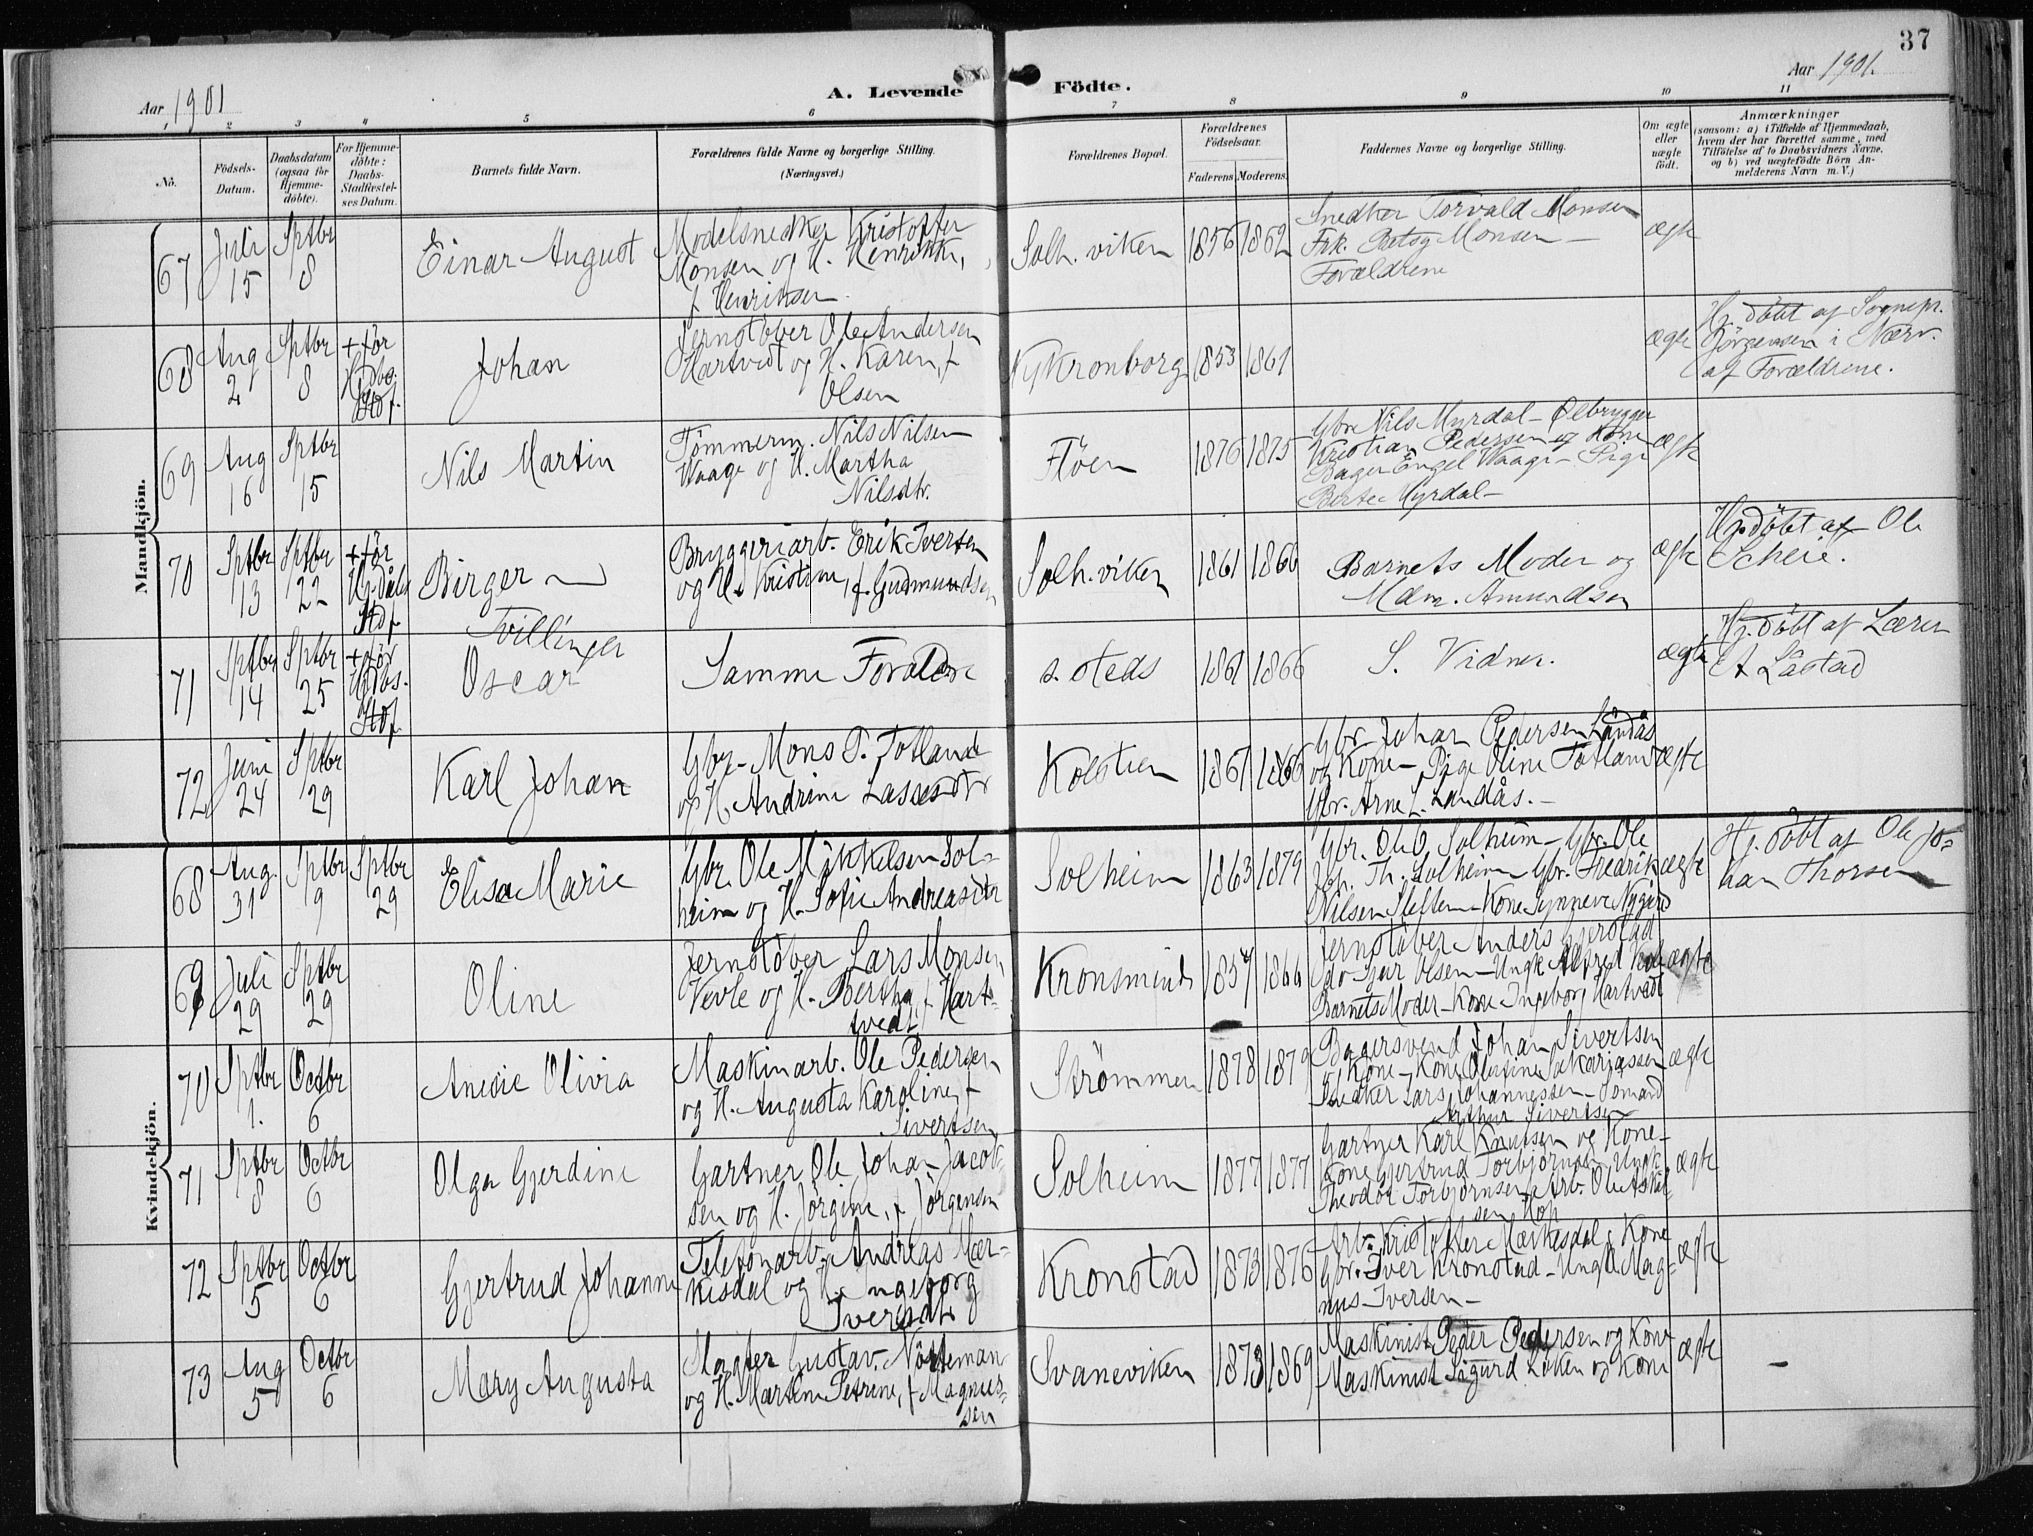 37
Aar 1901
A. Levende
Födte.
Aar 1901.
1 2 3 4 5 6 7 8 9 10 11
No.
Födsels-
Datum.
Daabsdatum
(ogsaa for
Hjemme-
döbte).
For Hjemme-
döbte:
Daabs-
Stadfæstel-
ses Datum.
Barnets fulde Navn.
Forældrenes fulde Navne og borgerlige Stilling.
(Næringsvei.)
Forældrenes Bopæl.
Forældrenes
Födselsaar.
Faderens. Moderens.
Faddernes Navne og borgerlige Stilling.
Om ægte
eller
uægte
födt.
Anmærkninger
(saasom: a) i Tilfælde af Hjemmedaab,
hvem der har forrettet samme, med
Tilföielse af to Daabsvidners Navne,
og b) ved uægtefödte Börn An-
melderens Navn m. V.)
Mandkjön.
67
Juli
15
Sptbr
8
Einar August
Modelsnedker Kristoffer
Monsen og H. Henrikke,
f. Henriksen
Solh. viken
1856 1862
Snedker Torvald Monsen
Frk. Betsy Monsen —
Forældrene
ægte
68
Aug
2
Sptbr
8
+ før
Stdf.
Johan
Jernstøber Ole Andersen
Hartvedt og H. Karen, f.
Olsen
Ny Kronborg
1853 1861
ægte
Hj. döbt af Sognepr.
Jörgensen i Nærv.
af Forældrene.
69
Aug
16
Sptbr
15
Nils Martin
Tømmerm. Nils Nilsen
Waage og H. Martha
Nilsdtr.
Fløen
1876 1875
Gbr Nils Myrdal — Ølbrygger
Kristian Pedersen og Kone
Bager Engel Waage — Pige
Berte Myrdal —
ægte
70
Sptbr
13
Sptbr
22
+ før
Stdf
Birger
Tvillinger
Bryggeriarb. Erik Iversen
og H. Kristine, f. Gudmundsen
Solh. viken
1861 1866
Barnets Moder og
Mdm. Amundsen
ægte
Hj. döbt af Ole
Scheie.
71
Sptbr
14
Sptbr
25
+ før
Stdf
Oscar
Samme Forældre
s. steds
1861 1866
S. Vidner.
ægte
Hj. döbt af Lærer
A Låstad
72
Juni
24
Sptbr
29
Karl Johan
Gbr. Mons T. Totland
og H. Andrine Lassesdtr
Kolstien
1867 1866
Gbr Johan Pedersen Landås
og Kone — Pige Oline Totland
Gbr. Arne L. Landås. —
ægte
Kvindekjön.
68
Aug.
31
Sptbr
9
Sptbr
29
Elisa Marie
Gbr. Ole Mikkelsen Sol-
heim og H. Sofie Andreasdtr
Solheim
1863 1879
Gbr. Ole O. Solheim — Gbr. Ole
Joh. Th. Solheim — Gbr. Fredrik
Nilsen Sletten — Kone Synneve Nygård
ægte
Hj. döbt af Ole Jo-
han Thorsen
69
Juli
29
Sptbr
29
Oline
Jernstøber Lars Monsen
Vevle og H. Bertha, f. Hart-
vedt
Kronsminde
1857 1866
Jernstøber Anders Gjerstad
Olsen — Ungk. Alfred
Barnets Moder — Kone Ingeborg Hartvedt
ægte
70
Sptbr
1.
Octbr
6
Anesie Olivia
Maskinarb. Ole Pedersen
og H. Augusta Karoline, f.
Sivertsen
Strömmen
1878 1879
Bagersvend Johan Sivertsen
og Kone — Kone Olufine Sakariassen
Snedker Lars Johannessen — Sömand
Arthur Sivertsen
ægte
71
Sptbr
8
Octbr
6
Olga Gjerdine
Gartner Ole Johan Jacob-
sen og H. Jørgine, f. Jørgensen
Solheim
1877 1877
Gartner Karl Knutsen og Kone —
Kone Gjertrud Torbjørnsen — Ungk.
Theodor Torbjørnsen — Arb. Ole Aski-
sen Hop
ægte
72
Sptbr
5
Octbr
6
Gjertrud Johanne
Telefonarb. Andreas Mær-
kisdal og H. Ingeborg
Iversdtr
Kronstad
1873 1876
Arb. Kristoffer Mærkisdal og Kone
Gbr. Iver Kronstad — Ungk. Mag-
nus Iversen —
ægte
73
Aug
5
Octbr
6
Mary Augusta
Slagter Gustav Nösteman
og H. Martine Petrine, f. Magnus-
sen
Svaneviken
1873 1869
Maskinist Peder Pedersen og Kone
Maskinist Sigurd Løken og Kone
ægte